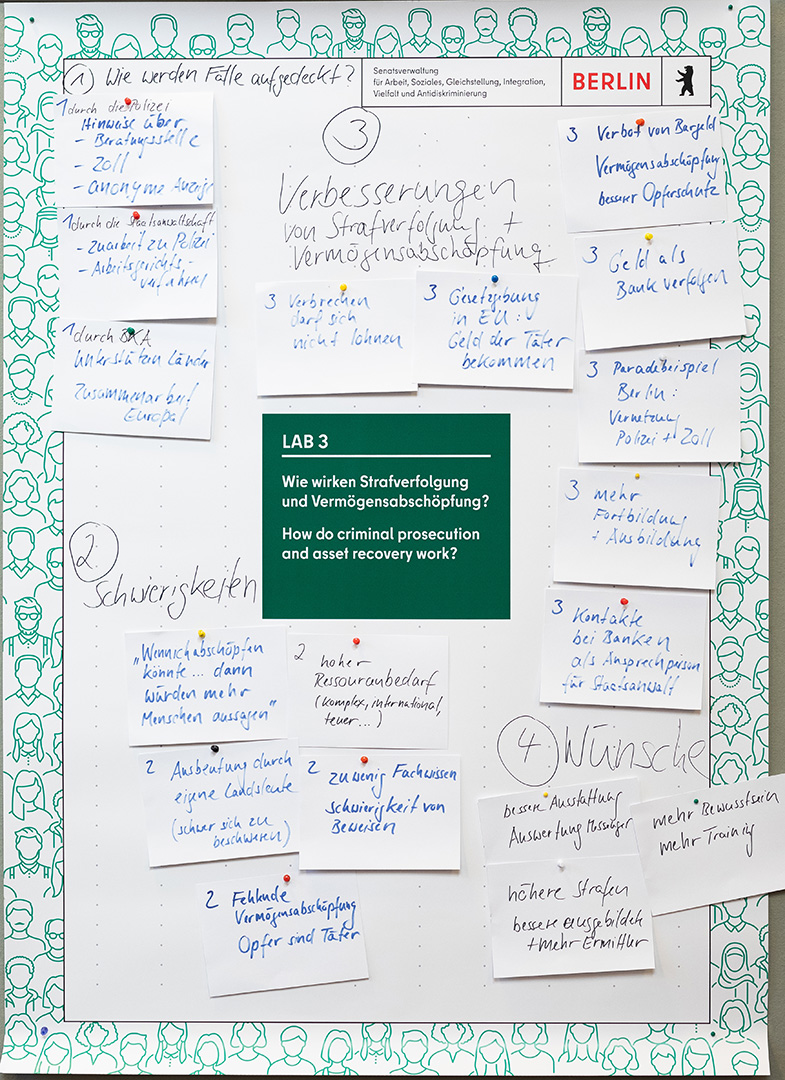 ① Wie werden Fälle aufgedeckt?
Senatsverwaltung
für Arbeit, Soziales, Gleichstellung, Integration,
Vielfalt und Antidiskriminierung
BERLIN
1 durch die Polizei
Hinweise über
- Beratungsstelle
- Zoll
- anonyme Anzeige
1 durch die Staatsanwaltschaft
- Zuarbeit zu Polizei
- Arbeitsgerichts-
verfahren
1 durch BKA
Unterstützen Länder
Zusammenarbeit
Europol
3
Verbesserungen
von Strafverfolgung +
Vermögensabschöpfung
3 Verbrechen
darf sich
nicht lohnen
3 Gesetzgebung
in EU:
Geld der Täter
bekommen
3 Verbot von Bargeld
Vermögensabschöpfung
besserer Opferschutz
3 Geld als
Bank verfolgen
3 Paradebeispiel
Berlin:
Vernetzung
Polizei + Zoll
3 mehr
Fortbildung
+ Ausbildung
3 Kontakte
bei Banken
als Ansprechperson
für Staatsanwalt
LAB 3
Wie wirken Strafverfolgung
und Vermögensabschöpfung?
How do criminal prosecution
and asset recovery work?
2.
Schwierigkeiten
„Wenn ich abschöpfen
könnte... dann
würden mehr
Menschen aussagen"
2 hoher
Ressourcenbedarf
(komplex, international,
teuer...)
2 Ausbeutung durch
eigene Landsleute
(schwer sich zu
beschweren)
2 zu wenig Fachwissen
Schwierigkeit von
Beweisen
2 Fehlende
Vermögensabschöpfung
Opfer sind Täter
4. Wünsche
bessere Ausstattung
Auswertung Messenger
mehr Bewusstsein
mehr Training
höhere Strafen
bessere ausgebildete
+ mehr Ermittler